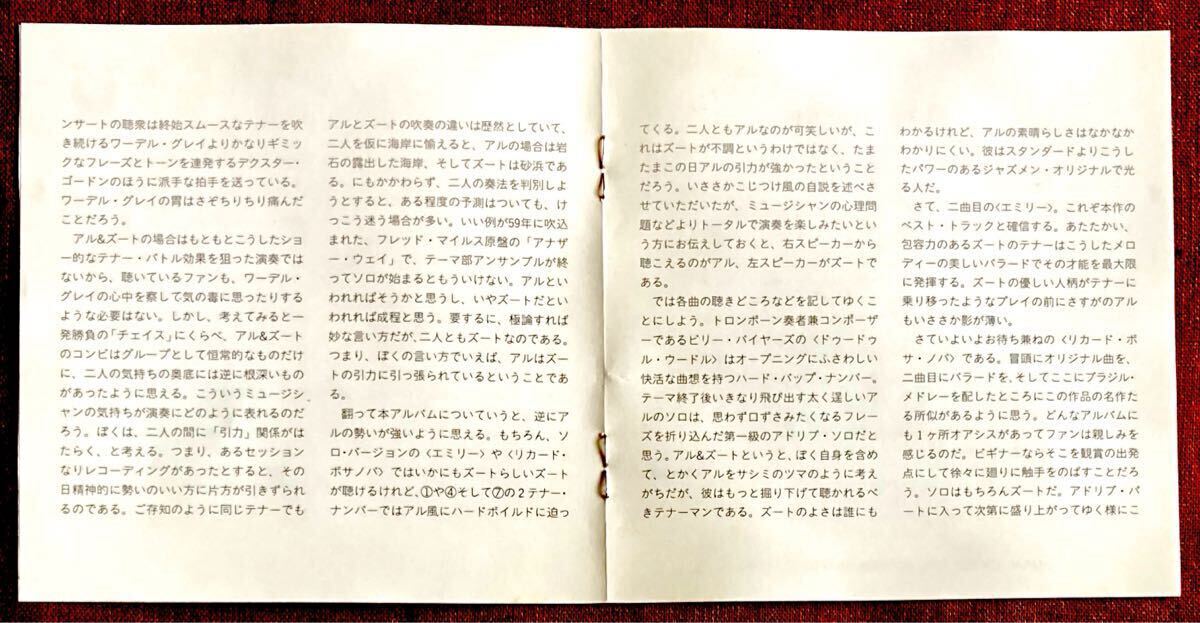 ンサートの聴衆は終始スムースなテナーを吹
き続けるワーデル・グレイよりかなりギミッ
クなフレーズとトーンを連発するデクスター・
ゴードンのほうに派手な拍手を送っている。
ワーデル・グレイの胃はさぞちりちり痛んだ
ことだろう。
アル&ズートの場合はもともとこうしたショ
ー的なテナー・バトル効果を狙った演奏では
ないから、聴いているファンも、ワーデル・
グレイの心中を察して気の毒に思ったりする
ような必要はない。しかし、考えてみると一
発勝負の「チェイス」にくらべ、アル&ズート
のコンビはグループとして恒常的なものだけ
に、二人の気持ちの奥底には逆に根深いもの
があったように思える。こういうミュージシ
ャンの気持ちが演奏にどのように表れるのだ
ろう。ぼくは、二人の間に「引力」関係がは
たらく、と考える。つまり、あるセッション
なりレコーディングがあったとすると、その
日精神的に勢いのいい方に片方が引きずられ
るのである。ご存知のように同じテナーでも
アルとズートの吹奏の違いは歴然としていて、
二人を仮に海岸に愉えると、アルの場合は岩
石の露出した海岸、そしてズートは砂浜であ
る。にもかかわらず、二人の奏法を判別しよ
うとすると、ある程度の予測はついても、け
っこう迷う場合が多い。いい例が59年に吹込
まれた、フレッド・マイルス原盤の「アナザ
ー・ウェイ」で、テーマ部アンサンブルが終
ってソロが始まるともういけない。アルとい
われればそうかと思うし、いやズートだとい
われれば成程と思う。要するに、極論すれば
妙な言い方だが、二人ともズートなのである。
つまり、ぼくの言い方でいえば、アルはズー
トの引力に引っ張られているということであ
る。
翻って本アルバムについていうと、逆にア
ルの勢いが強いように思える。もちろん、ソ
ロ・バージョンの〈エミリー〉や〈リカード・
ボサノバ〉ではいかにもズートらしいズート
が聴けるけれど、①や④そして⑦の2テナー・
ナンバーではアル風にハードボイルドに迫っ
てくる。二人ともアルなのが可笑しいが、こ
れはズートが不調というわけではなく、たま
たまこの日アルの引力が強かったということ
だろう。いささかこじつけ風の自説を述べさ
せていただいたが、ミュージシャンの心理問
題などよりトータルで演奏を楽しみたいとい
う方にお伝えしておくと、右スピーカーから
聴こえるのがアル、左スピーカーがズートで
ある。
では各曲の聴きどころなどを記してゆくこ
とにしよう。トロンボーン奏者兼コンポーザ
ーであるビリー・バイヤーズの〈ドゥードゥ
ル・ウードル〉はオープニングにふさわしい
快活な曲想を持つハード・バップ・ナンバー。
テーマ終了後いきなり飛び出す太く逞しいア
ルのソロは、思わず口ずさみたくなるフレー
ズを折り込んだ第一級のアドリブ・ソロだと
思う。アル&ズートというと、ぼく自身を含め
て、とかくアルをサシミのツマのように考え
がちだが、彼はもっと掘り下げて聴かれるべ
きテナーマンである。ズートのよさは誰にも
わかるけれど、アルの素晴らしさはなかなか
わかりにくい。彼はスタンダードよりこうし
たパワーのあるジャズメン・オリジナルで光
る人だ。
さて、二曲目の〈エミリー〉。これぞ本作の
ベスト・トラックと確信する。あたたかい、
包容力のあるズートのテナーはこうしたメロ
ディーの美しいバラードでその才能を最大限
に発揮する。ズートの優しい人柄がテナーに
乗り移ったようなプレイの前にさすがのアル
もいささか影が薄い。
さていよいよお待ち兼ねの〈リカード・ボ
サ・ノバ〉である。冒頭にオリジナル曲を、
二曲目にバラードを、そしてここにブラジル・
メドレーを配したところにこの作品の名作た
る所似があるように思う。どんなアルバムに
も1ヶ所オアシスがあってファンは親しみを
感じるのだ。ビギナーならそこを観賞の出発
点にして徐々に廻りに触手をのばすことだろ
う。ソロはもちろんズートだ。アドリブ・パ
ートに入って次第に盛り上がってゆく様にこ